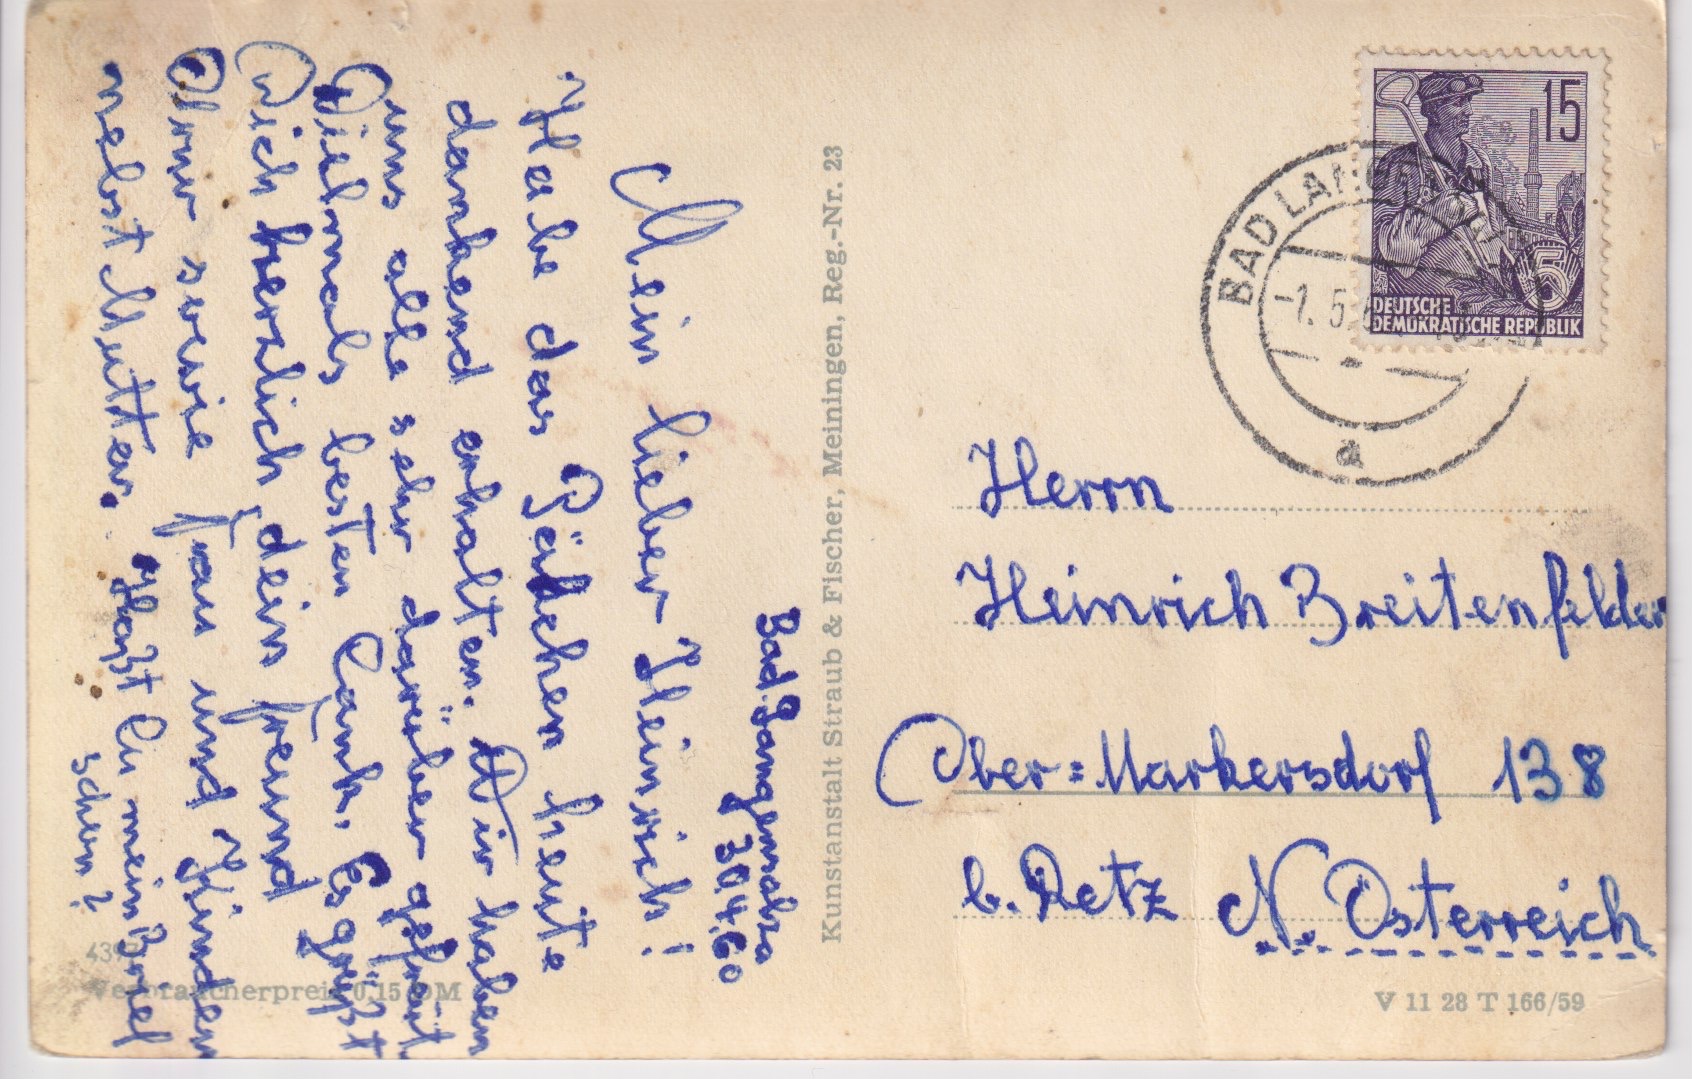 Bad. Langensalza
30.4.60
Mein lieber Heinrich!
Habe das Päkchen heute
dankend erhalten. Wir haben
uns alle sehr darüber gefreut
Vielmals besten Dank. Es grüßt
Dich herzlich dein freund
sowie Frau und Kinder
nebst Mutter. Hast Du mein Brief
schon?
439
Verbraucherpreis 0,15 DM
Kunstanstalt Straub & Fischer, Meiningen, Reg.-Nr. 23
15
5
DEUTSCHE
DEMOKRATISCHE REPUBLIK
BAD
-1.5.
a
Herrn
Heinrich Breitenfelder
Ober=Markersdorf 138
b. Retz N. Österreich
V 11 28 T 166/59